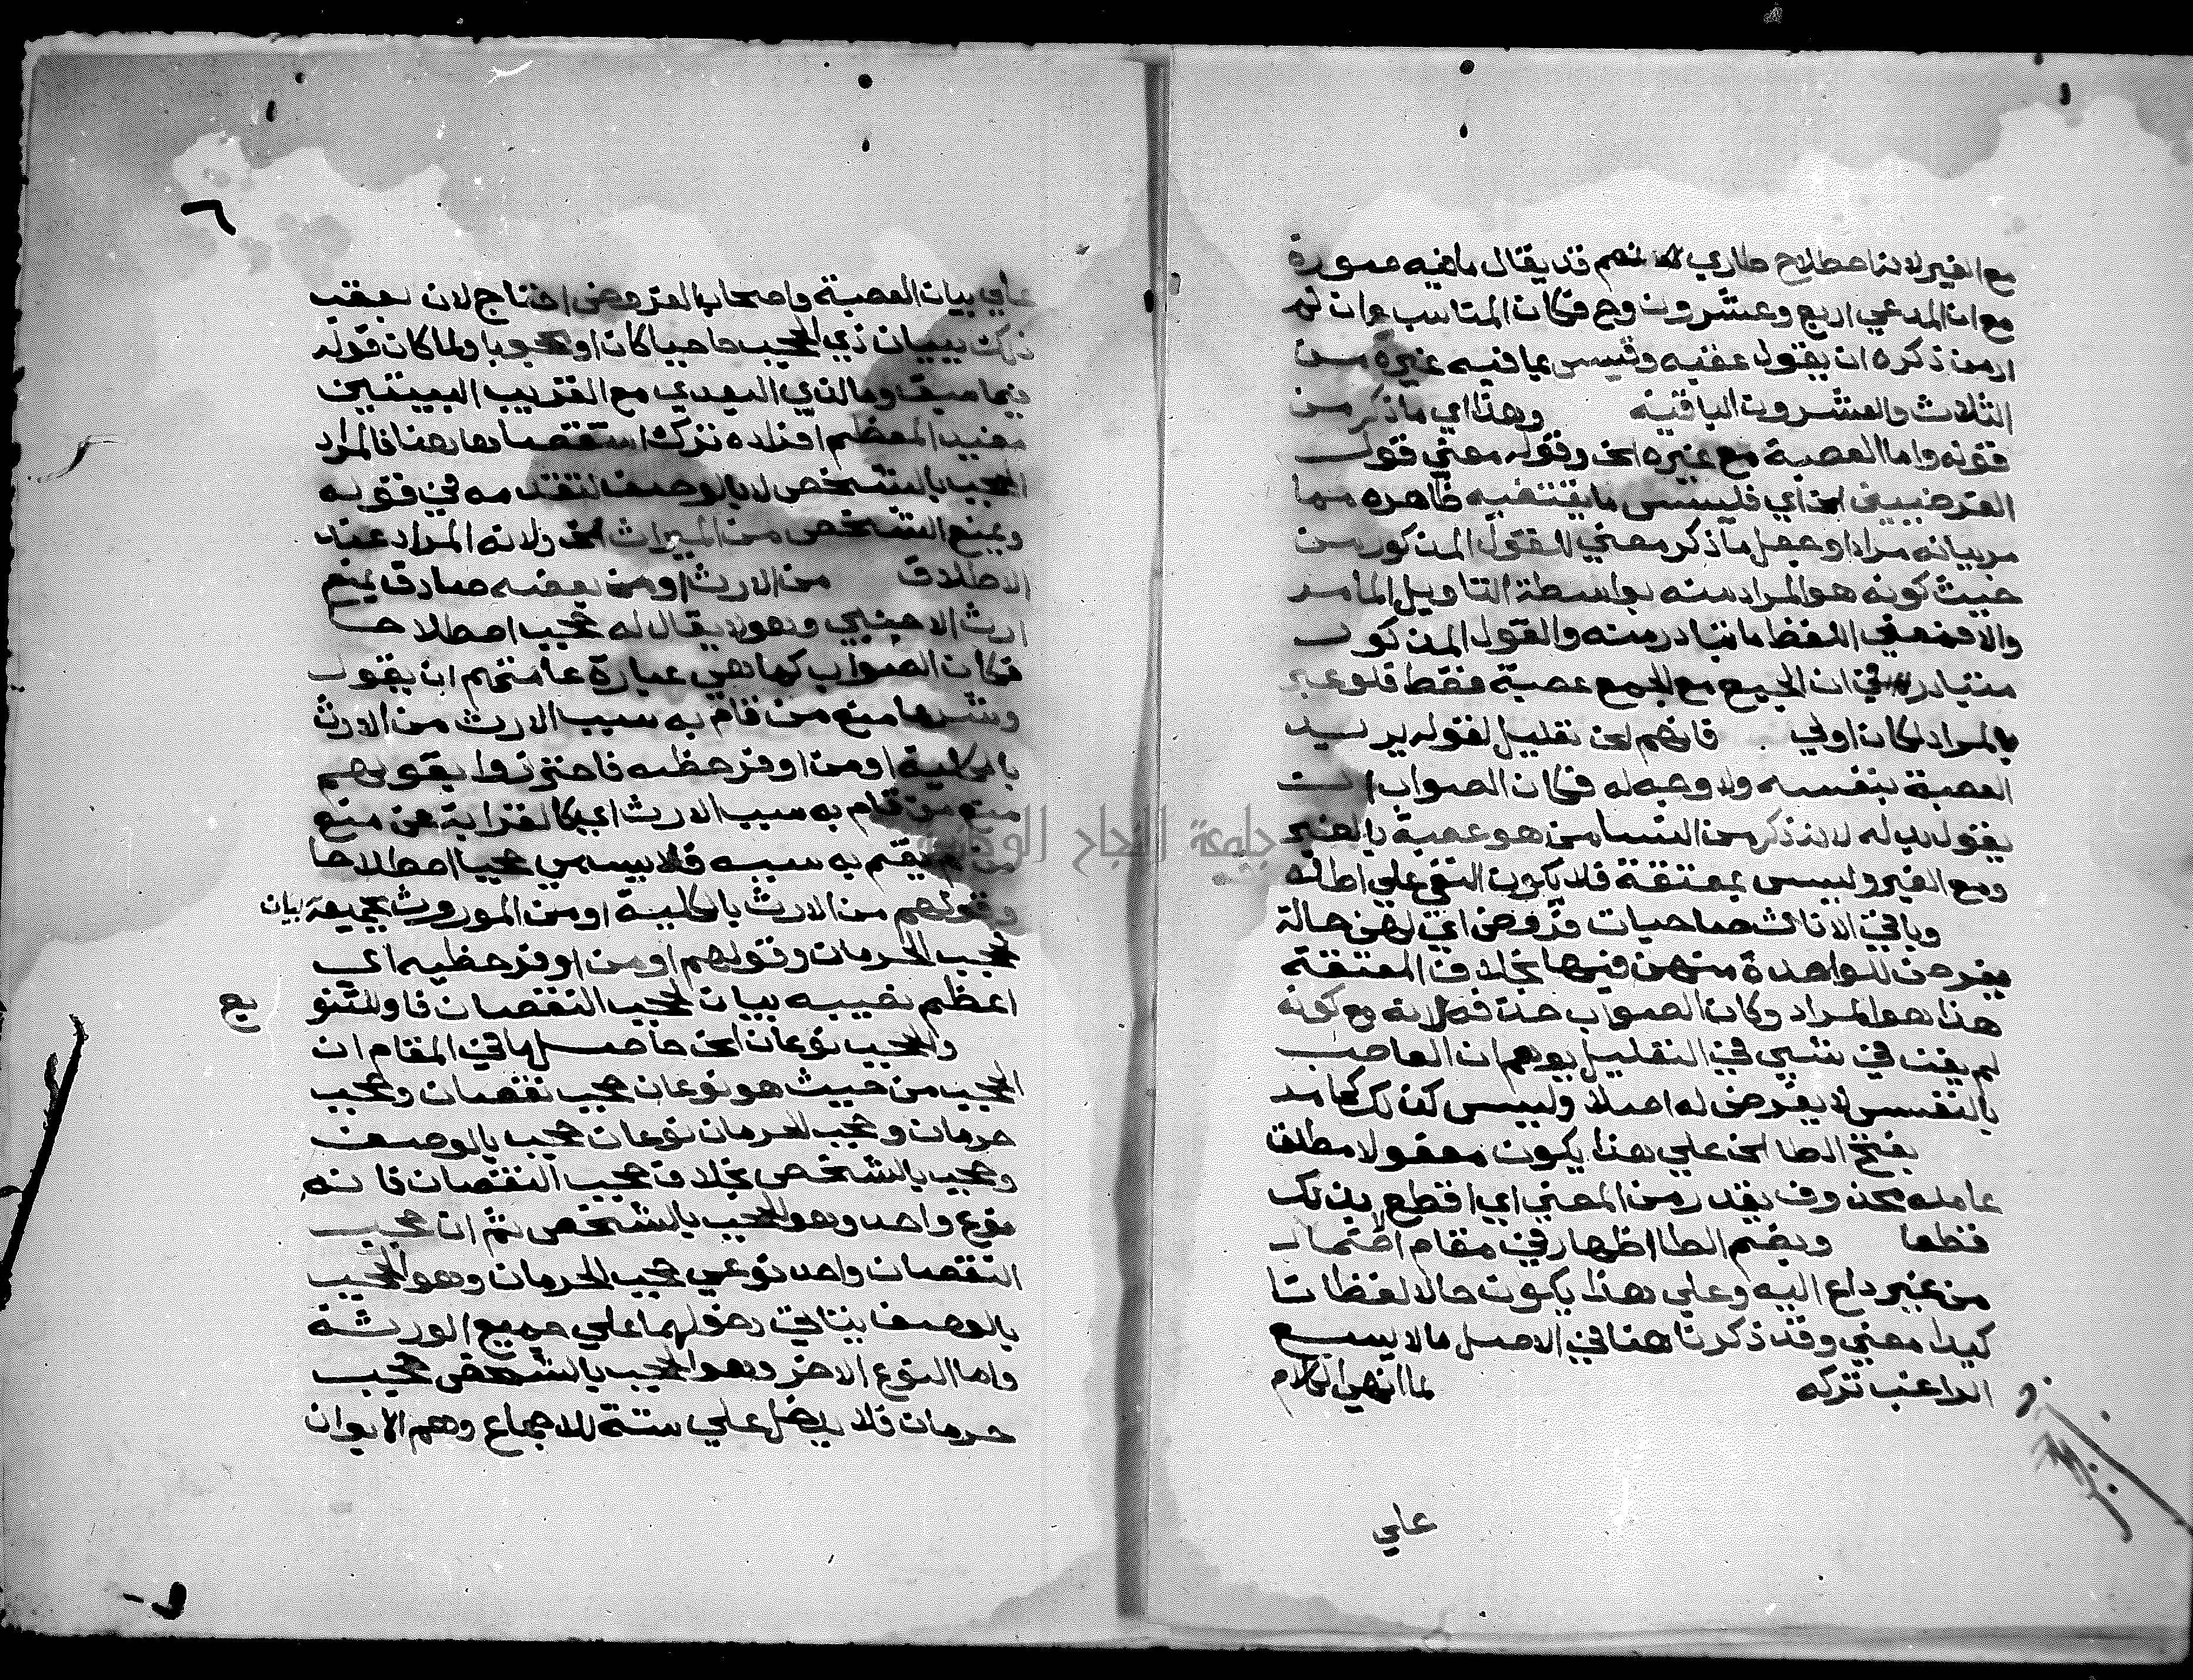 مع الغير لانه اصطلاح طاري نعم قد يقال ما فيه صورة
مع ان المدعي اربع وعشرون وح فكان المناسب وان لم
ار من ذكره ان يقول عقبه وقيس بما فيه غيره من
الثلاث والعشرون الباقية وهذا اي ما ذكر من
قوله واما العصبة مع غيره الخ وقوله معني قول
الفرضيين الخ اي فليس ما يقتضيه ظاهره مما
مر بيانه مرادا وجعل ما ذكر معني للقول المذكور من
حيث كونه هو المراد منه بواسطة التاويل المامر
والا فمعني اللفظ ما يتبادر منه والقول المذكور
متبادر في ان الجميع مع الجمع عصبة فقط فلو عبر
بالمراد لكان اولي فانهم الخ تعليل لقوله يريد
العصبة بنفسه ولا وجه له فكان الصواب ان
يقول بدله لانه ذكر من النسا من هو عصبة بالغير
ومع الغير وليس بمعتقة فلا يكون النفي علي اطلاقه
وباقي الاناث صاحبات فرض اي لهن حالة
يفرض للواحدة منهن فيها بخلاف المعتقة
هذا هو المراد وكان الصواب حذفه لانه مع كونه
لم يفد في شيي في التعليل يوهم ان العاصب
بالنفس لا يفرض له اصلا وليس كذلك كما مر
بفتح الطا الخ علي هذا يكون مفعولا مطلقا
عامله محذوف يقدر من المعني اي اقطع بذلك
قطعا وبضم الطا اظهار في مقام الاضمار
من غير داع اليه وعلي هذا يكون حالا لفظا تا
كيدا معني وقد ذكرنا هنا في الاصل ما لا يسع
الراغب تركه لما انهي الكلام
علي
٦
علي بيان العصبة واصحاب الفروض احتاج لان يعقب
ذلك ببيان ذي الحجب حاجبا كان او محجوبا ولما كان قوله
فيما سبق وما لذي البعدي مع القريب البيتين
مفيدا لمعظم افراده ترك استقصاها هنا فالمراد
الحجب بالشخص لا بالوصف لتقدمه في قوله
ويمنع الشخص من الميراث الخ ولانه المراد عند
الاطلاق من الارث او من بعضه صادق بمنع
ارث الاجنبي وهو لا يقال له حجب اصطلاحا
فكان الصواب كما هي عبارة عامتهم ان يقول
وشرعا منع من قام به سبب الارث من الارث
بالكلية او من اوفر حظيه فاحترزوا بقولهم
منع من قام به سبب الارث اي كالقرابة عن منع
من لم يقم به سببه فلا يسمي حجبا اصطلاحا
وقولهم من الارث بالكلية او من الموروث بجميعه بيان
لحجب الحرمان وقولهم او من اوفر حظيه اي
اعظم نصيبه بيان لحجب النقصان فاو للتنو
يع
والحجب نوعان الخ حاصل ما في المقام ان
الحجب من حيث هو نوعان حجب نقصان وحجب
حرمان وحجب الحرمان نوعان حجب بالوصف
وحجب بالشخص بخلاف حجب النقصان فانه
نوع واحد وهو الحجب بالشخص ثم ان حجب
النقصان واحد نوعي حجب الحرمان وهو الحجب
بالوصف يتاتي دخولهما علي جميع الورثة
واما النوع الاخر وهو الحجب بالشخص حجب
حرمان فلا يدخل علي ستة للاجماع وهم الابوان
جامعة النجاح الوطنية